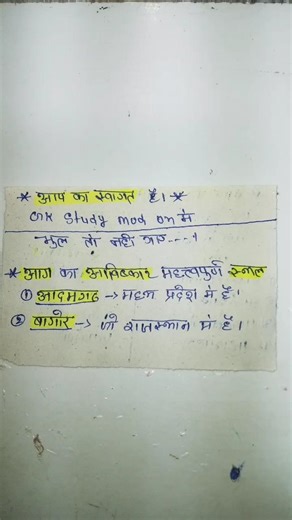 * आप का स्वागत है। *
GK Study mod on में
भुल तो नही गए----।
* आग का आविष्कार महत्वपुर्ण स्थल
① आदमगढ → मध्य प्रदेश में हैं।
② बागोर → जो राजस्थान में हैं।